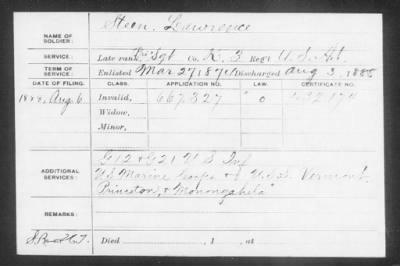 NAME OF SOLDIER: Steen, Lawrence
SERVICE: Late rank, Sgt Co. K. 3 Reg't U. S. Art.
TERM OF SERVICE: Enlisted Mar 27 187 Discharged Aug 3, 1888
DATE OF FILING. CLASS. APPLICATION NO. LAW. CERTIFICATE NO.
1888, Aug. 6 Invalid, 667,327
Widow,
Minor,
ADDITIONAL SERVICES: G 12 & G 21 U S Inf
U.S. Marine Corps & U.S.S. Vermont,
Princeton, & "Monongahela"
REMARKS:
Died , 1 , at